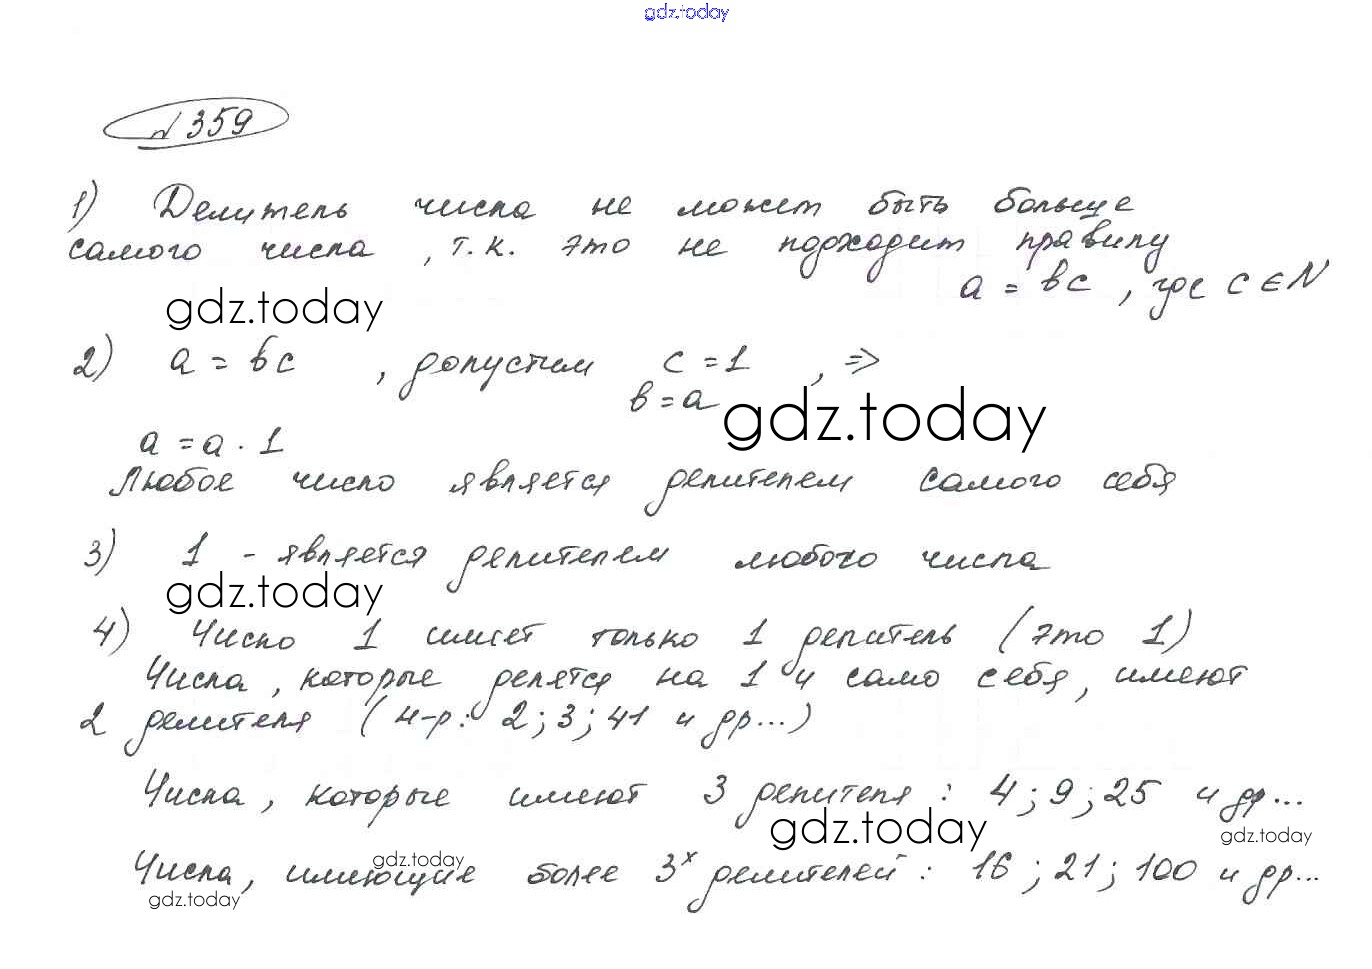 gdz.today
№ 359
1) Делитель числа не может быть больше
самого числа, т.к. это не подходит правилу
a = bc, где c ∈ N
gdz.today
2) a = bc, допустим c = 1, ⇒
b = a
gdz.today
a = a · 1
Любое число является делителем самого себя
3) 1 - является делителем любого числа
gdz.today
4) Число 1 имеет только 1 делитель (это 1)
Числа, которые делятся на 1 и само себя, имеют
2 делителя (н-р: 2; 3; 41 и др...)
Числа, которые имеют 3 делителя: 4; 9; 25 и др...
gdz.today
gdz.today
gdz.today
Числа, имеющие более 3х делителей: 16; 21; 100 и др...
gdz.today